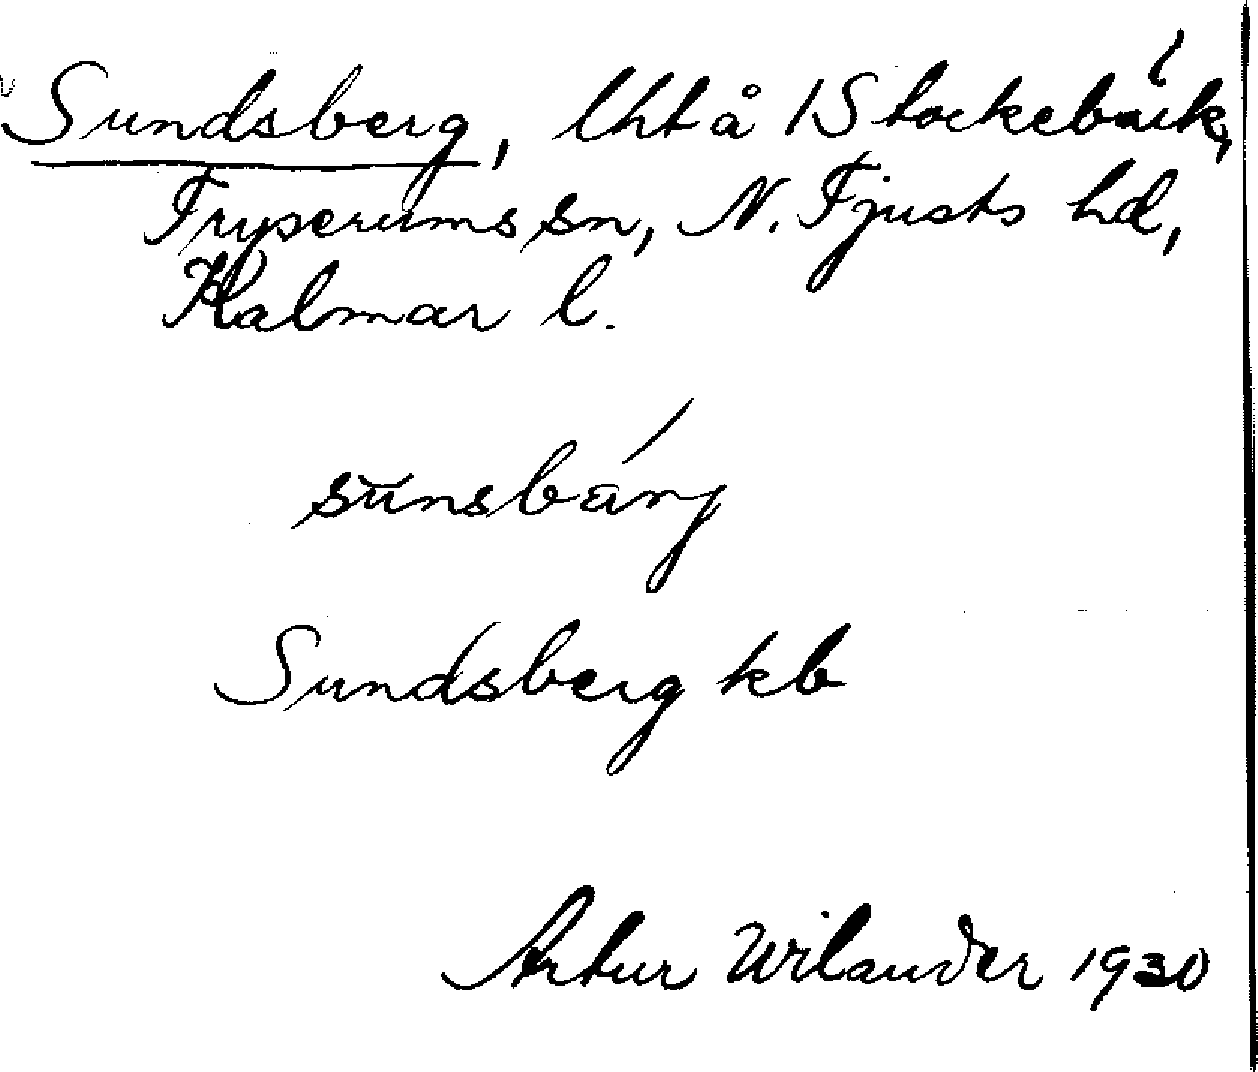 Sundsberg, lht å 1 Stockebäck,
Tryserums sn, N. Tjusts hd,
Kalmar l.
sūnsbärj
Sundsberg kb
Artur Wilander 1930